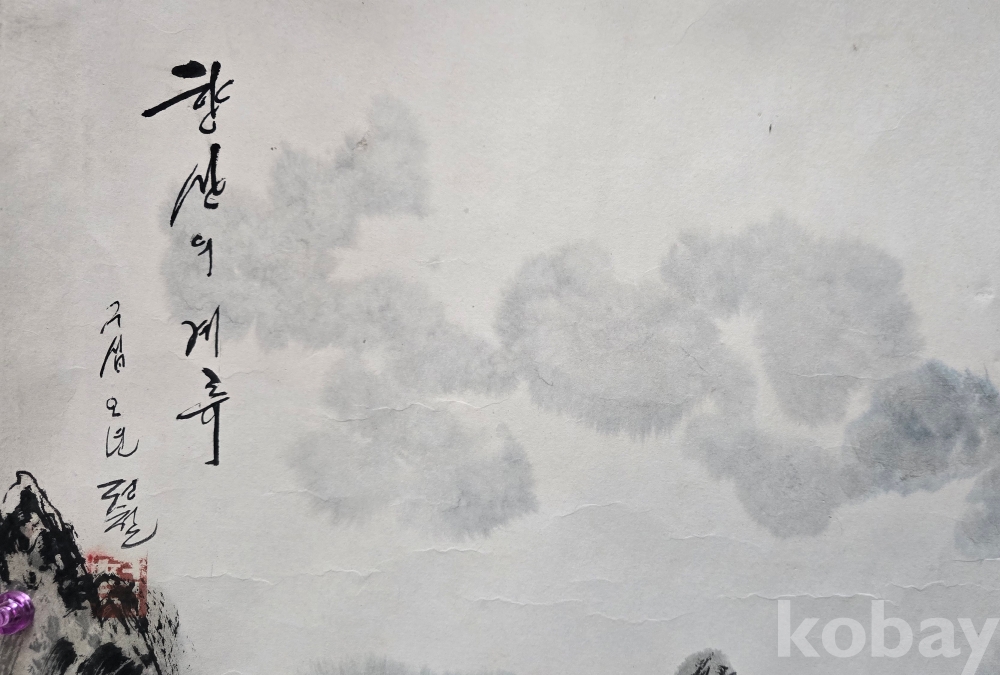 향산의 계류
구십 오년
kobay